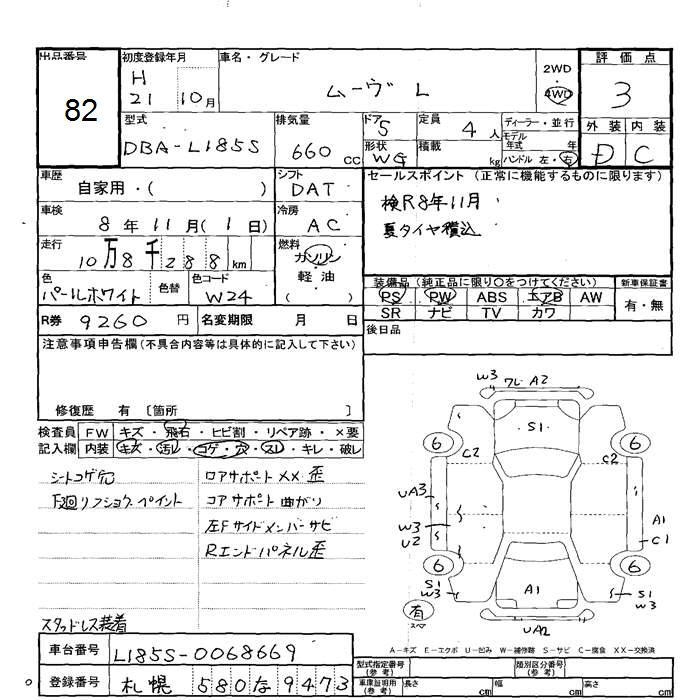 出品番号 初度登録年月 車名・グレード 評価点
82 H 21 10月 ムーヴ L 2WD 4WD 3
型式 排気量 ドア 定員 ディーラー・並行 外装 内装
DBA-L185S 660cc 5 4人 モデル年式 年 D C
形状 WG 積載 kg ハンドル 左・右
車歴 自家用・( ) シフト DAT セールスポイント (正常に機能するものに限ります)
車検 8年11月(1日) 冷房 AC 検R8年11月
夏タイヤ積込
走行 10万8千288km 燃料 ガソリン 軽油 ( )
色 パールホワイト 色替 色コード W24 装備品 (純正品に限り〇をつけてください) 新車保証書
PS PW ABS エアB AW 有・無
SR ナビ TV カワ
R券 9260円 名変期限 月 日 後日品
注意事項申告欄(不具合内容等は具体的に記入して下さい)
修復歴 有 〔箇所 〕
検査員 FW キズ・飛石・ヒビ割・リペア跡・×要
記入欄 内装 キズ・汚レ・コゲ・穴・スレ・キレ・破レ
シートコゲ穴 ロアサポートXX 歪
下廻リフショク.ペイント コアサポート曲がり
左Fサイドメンバーサビ
Rエンドパネル歪
スタッドレス装着
W3 ワレ A2
S1
6 6
C2 C2
UA3
W3
U2
A1
C1
6 6
S1 W3 A1 S1 W3
有 スペア
UA2
A-キズ E-エクボ U-凹み W-補修跡 S-サビ C-腐食 XX-交換済
車台番号 L185S-0068669 型式指定番号(参考) 類別区分番号(参考)
登録番号 札幌 580 な 9473 車庫証明用(参考) 長さ cm 幅 cm 高さ cm